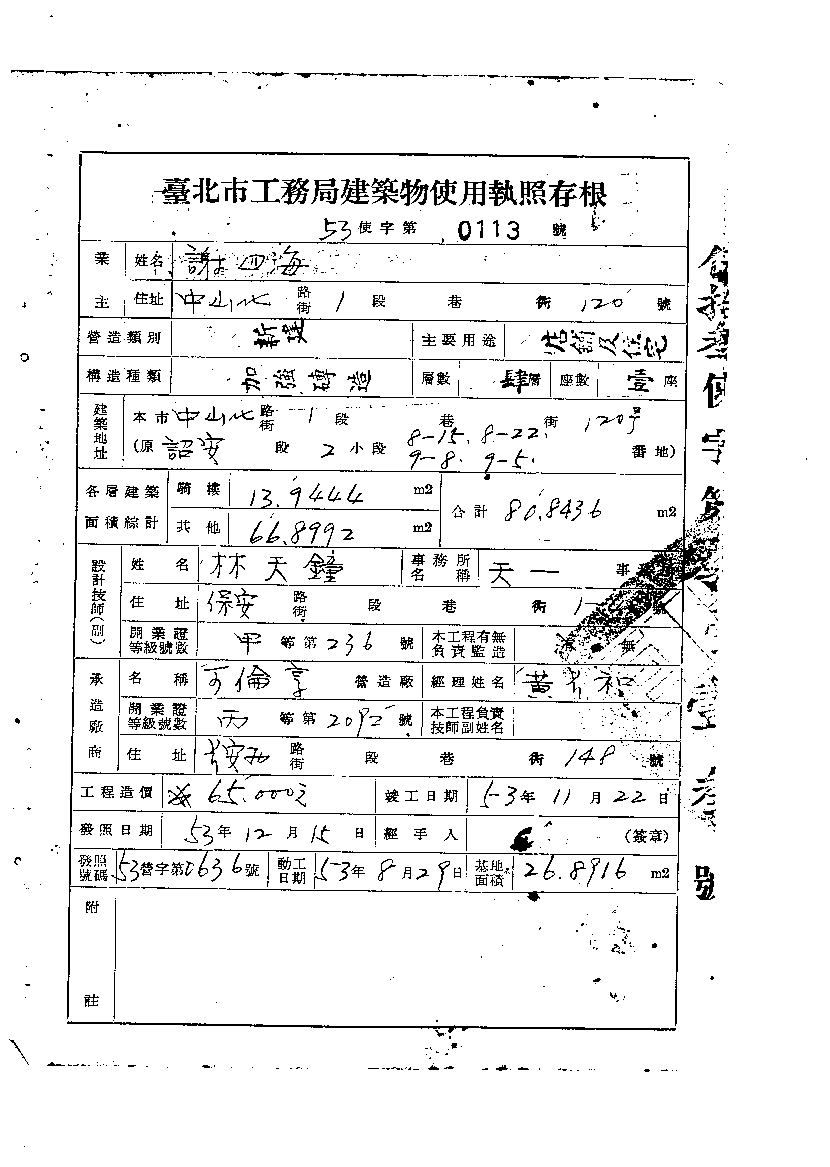 臺北市工務局建築物使用執照存根
53使字第 0113 號
業主 姓名 謝四海
住址 中山北路街 1段 巷 街 120號
營造類別 新建 主要用途 店鋪及住宅
構造種類 加強磚造 層數 肆層 座數 壹座
建築地址 本市中山北路街 1段 巷 街 120号
(原 詔安 段 2小段 8-15. 8-22. 9-8. 9-5. 番地)
各層建築面積綜計 騎樓 13.9444 m2 合計 80.8436 m2
其他 66.8992 m2
設計技師(副) 姓名 林天鐘 事務所名稱 天一 事
住址 保安路街 段 巷 街 號
開業證等級號數 甲等第236號 本工程有無負責監造 無
承造廠商 名稱 可倫享 營造廠 經理姓名 黃 和
開業證等級號數 丙等第2092號 本工程負責技師副姓名
住址 路街 段 巷 街 148號
工程造價 65.000元 竣工日期 53年11月22日
發照日期 53年12月15日 經手人 (簽章)
發照號碼 53營字第0636號 動工日期 53年8月29日 基地面積 26.8916 m2
附註
使字第 壹 號